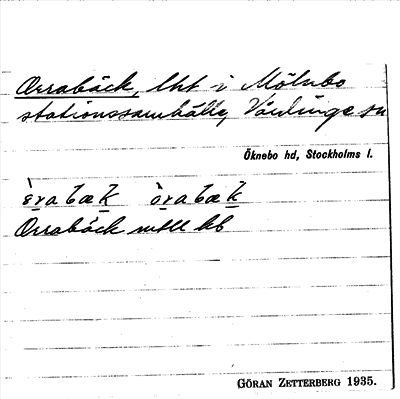 Orrabäck, lht i Mölnbo
stationssamhälle, Vårdinge sn
Öknebo hd, Stockholms l.
Orrabäck
GÖRAN ZETTERBERG 1935.